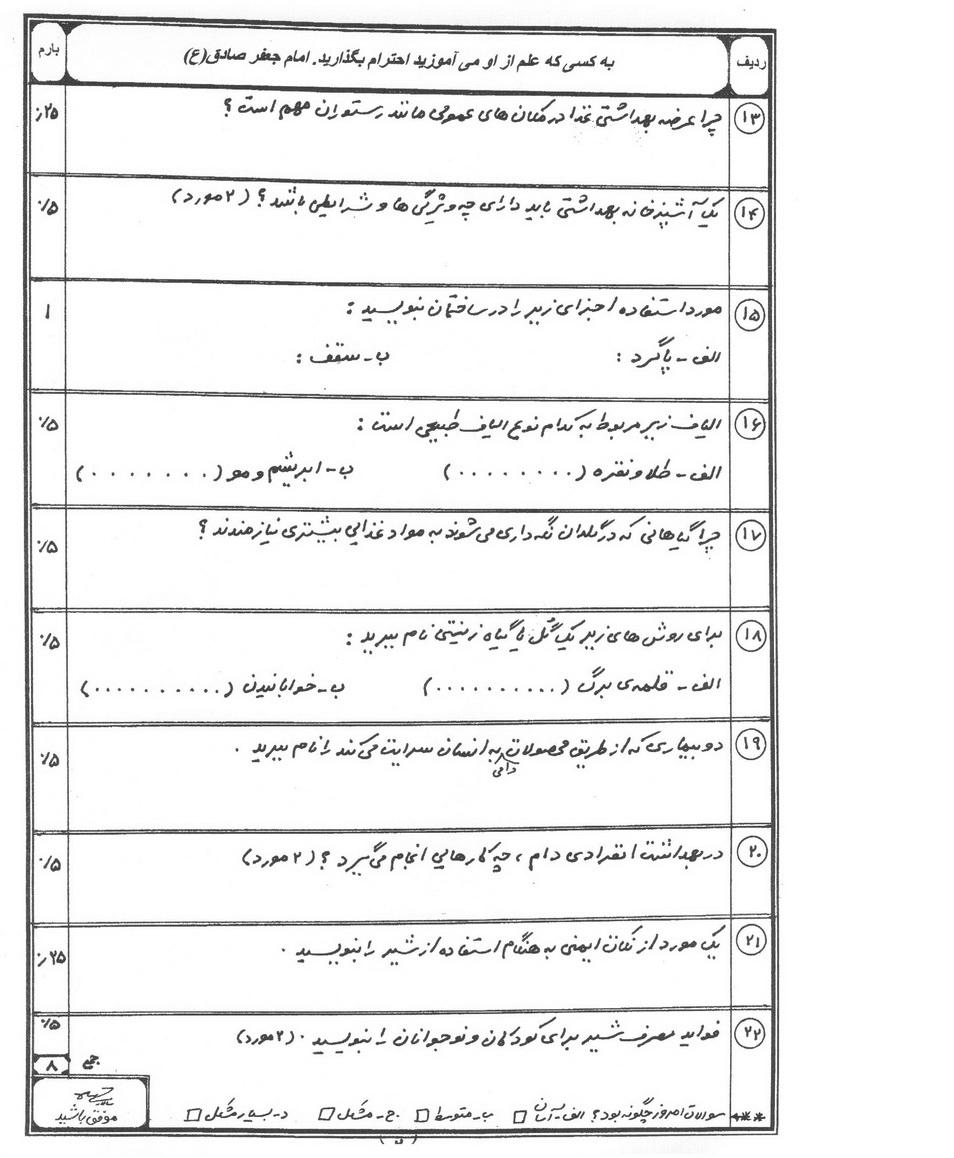 ردیف
به کسی که علم از او می آموزید احترام بگذارید. امام جعفر صادق(ع)
بارم
۱۳ چرا عرضه بهداشتی غذا در مکان های عمومی مانند رستوران مهم است؟ ۲۵/.
۱۴ یک آشپزخانه بهداشتی باید دارای چه ویژگی ها و شرایطی باشد؟ (۲ مورد) ۵/.
۱۵ مورد استفاده اجزای زیر را در ساختمان بنویسید: ۱
الف - پاگرد: ب - سقف:
۱۶ الیاف زیر مربوط به کدام نوع الیاف طبیعی است: ۵/.
الف - طلا و نقره (.........) ب - ابریشم و مو (........)
۱۷ چرا گیاهانی که در گلدان نگه داری می شوند به مواد غذایی بیشتری نیازمندند؟ ۵/.
۱۸ برای روش های زیر یک گل یا گیاه زینتی نام ببرید: ۵/.
الف - قلمه ی برگ (..........) ب - خوابانیدن (..........)
۱۹ دو بیماری که از طریق محصولات دامی به انسان سرایت می کند را نام ببرید. ۵/.
۲۰ در بهداشت انفرادی دام، چه کارهایی انجام می گیرد؟ (۲ مورد) ۵/.
۲۱ یک مورد از نکات ایمنی به هنگام استفاده از شیر را بنویسید. ۲۵/.
۲۲ فواید مصرف شیر برای کودکان و نوجوانان را بنویسید. (۲ مورد) ۵/.
جمع ۸
*** سوالات امروز چگونه بود؟ الف - آسان □ ب - متوسط □ ج - مشکل □ د - بسیار مشکل □
موفق باشید